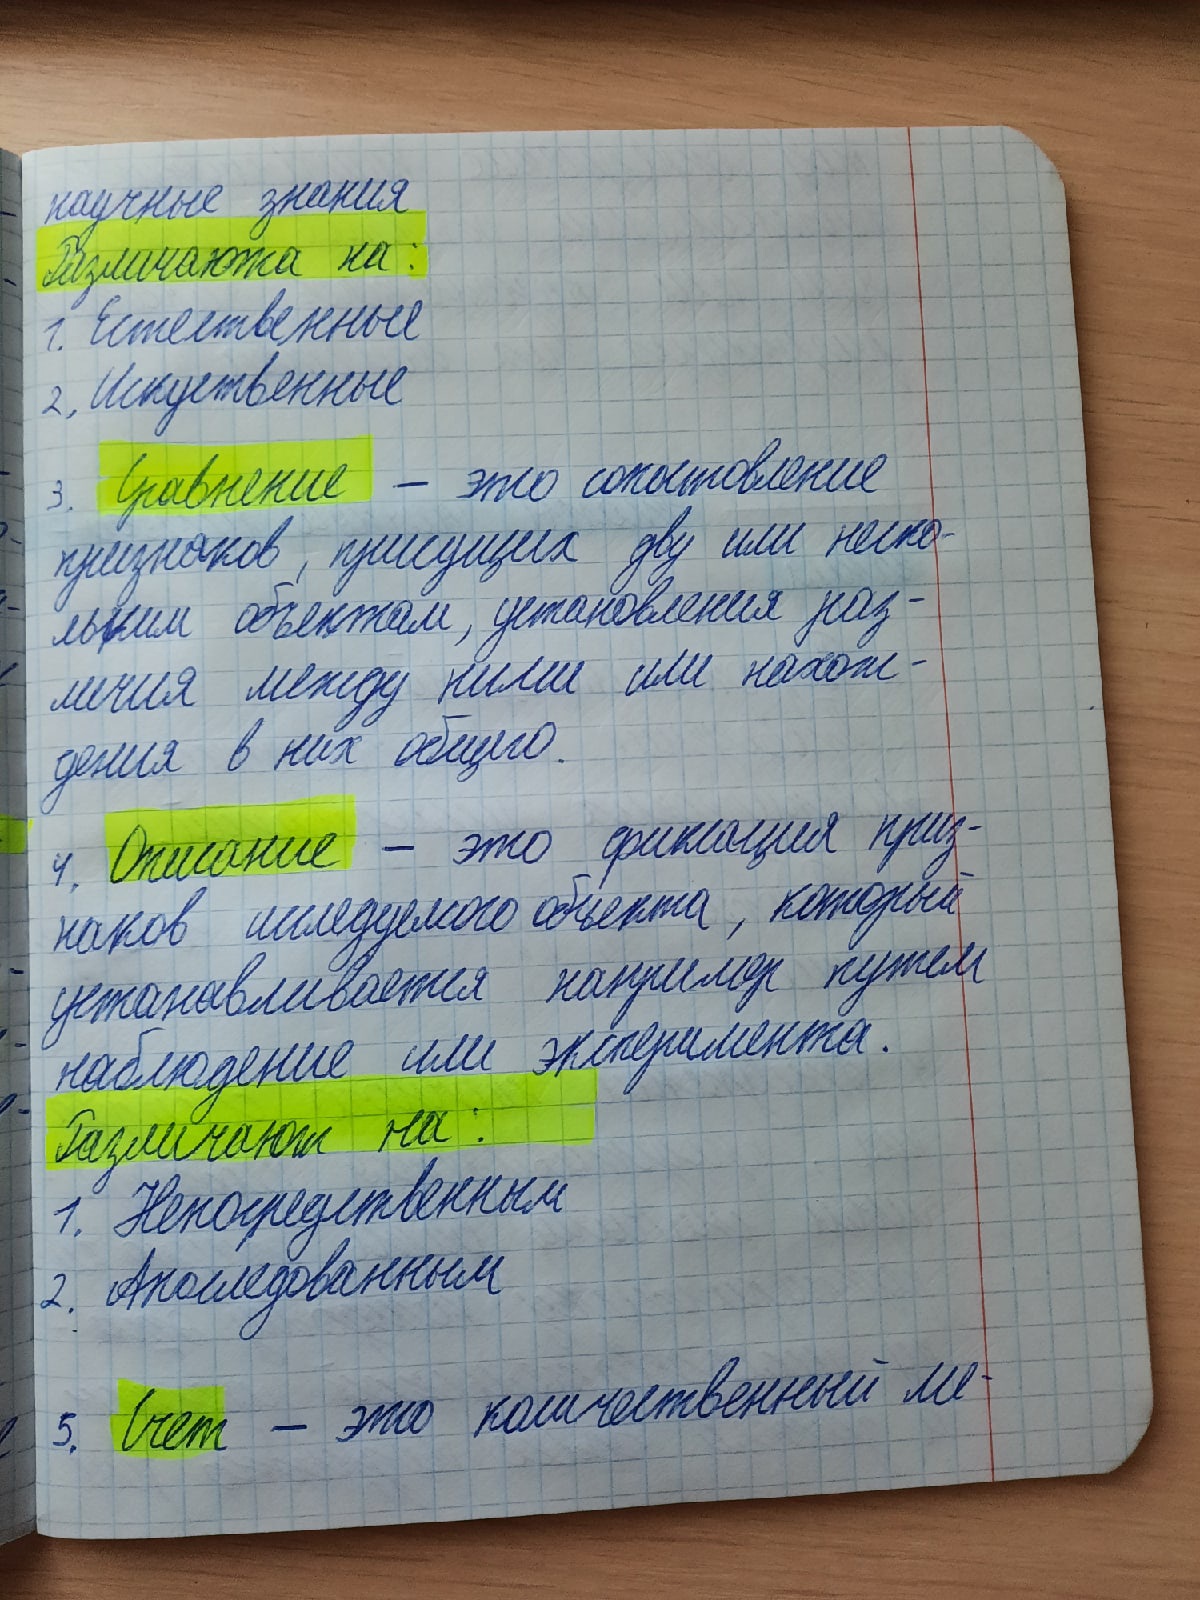 научные знания
Различаются на:
1. Естественные
2. Искуственные
3. Сравнение – это сопостовление
признаков, присущих дву или неско-
льким объектам, установления раз-
личия между ними или нахож-
дения в них общего.
4. Описание – это фиксация приз-
наков исследуемого объекта, который
устанавливается например путем
наблюдение или эксперимента.
Различают на:
1. Непосредственным
2. Апоследованным
5. Счет – это количественный ме-